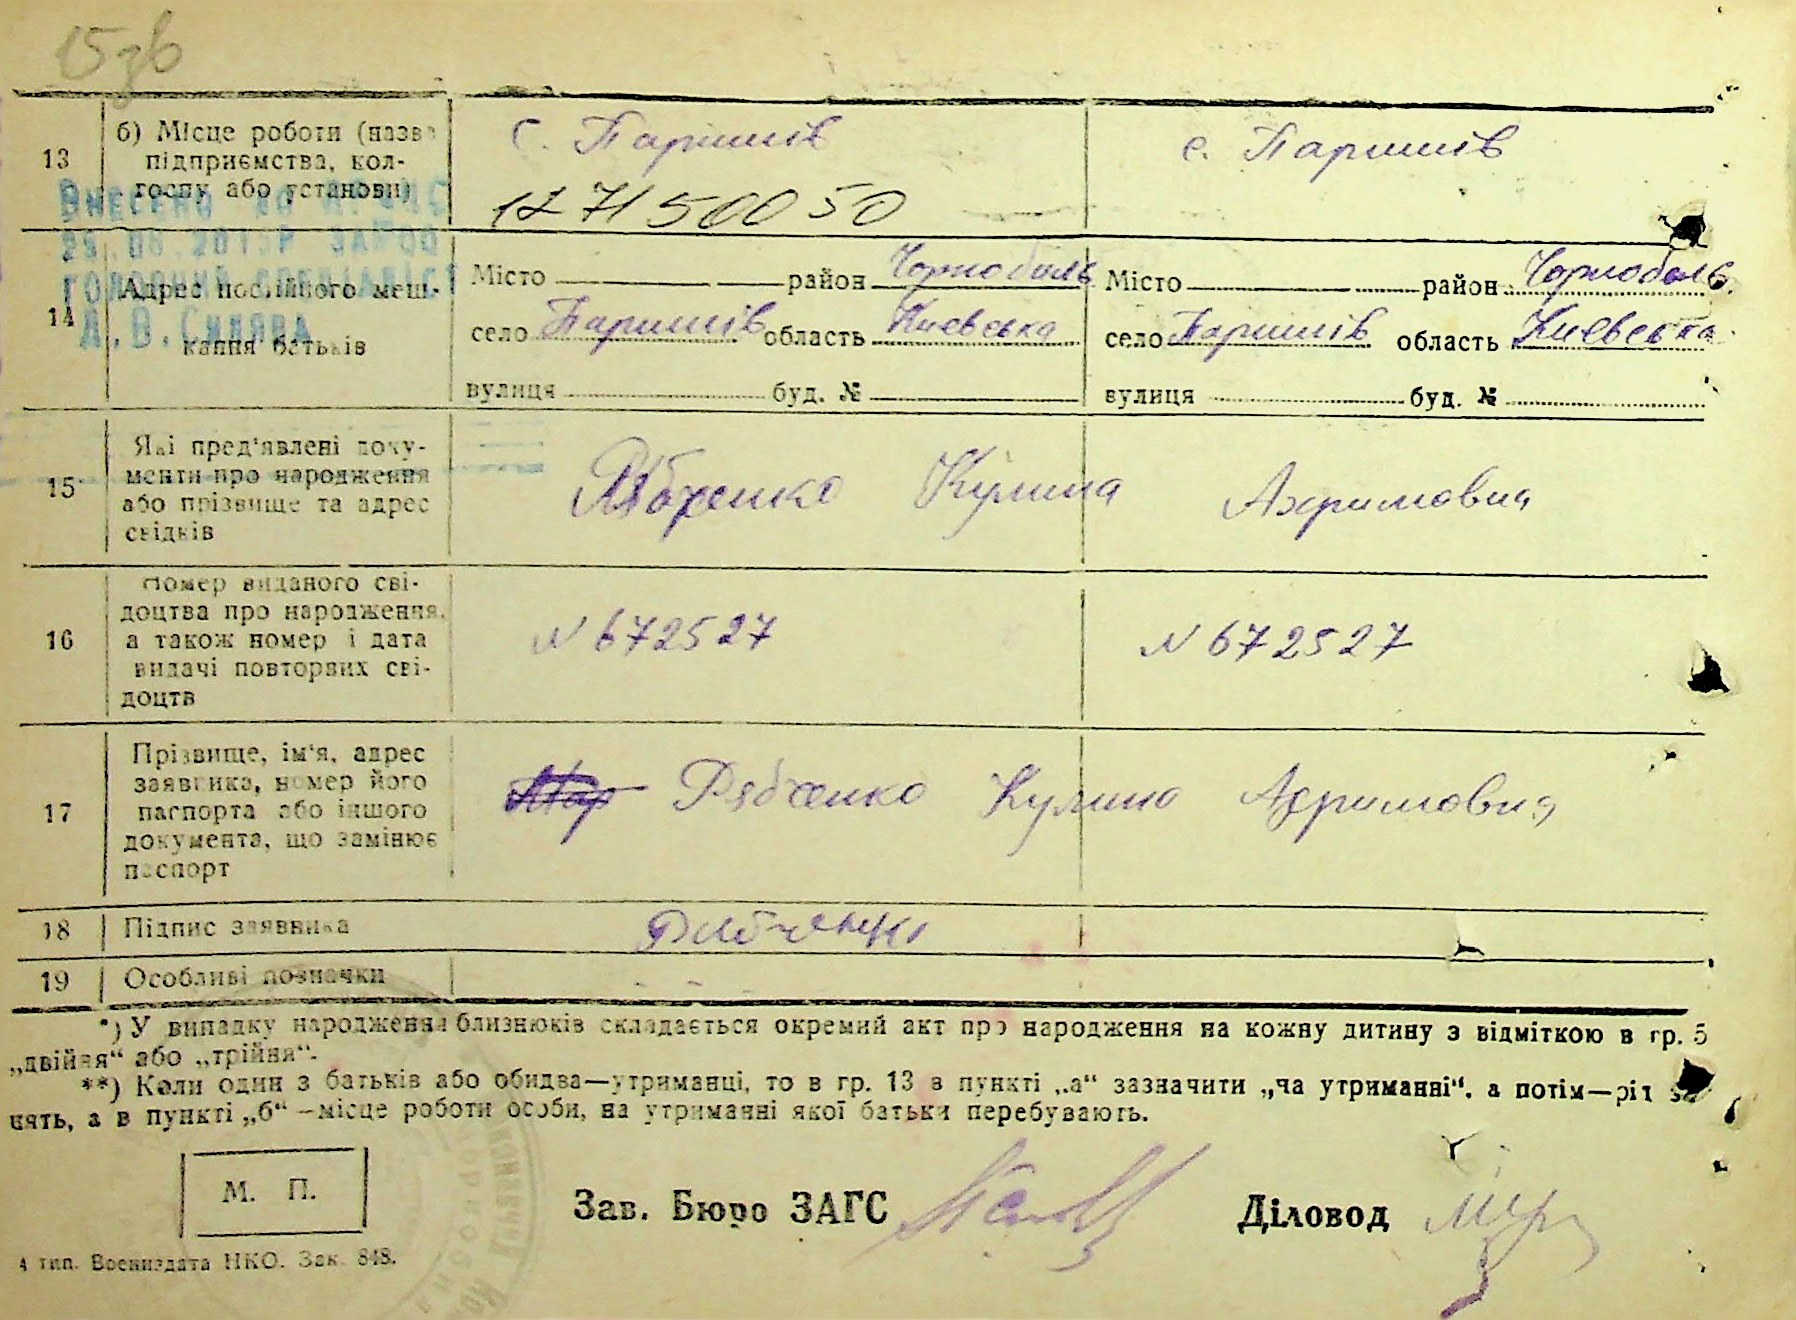 15зв
13 б) Місце роботи (назва підприємства, колгоспу або установи) с. Паришів с. Паришів
1271500050
ВНЕСЕНО ДО
ГОЛОВНИЙ СПЕЦІАЛІСТ
14 Адрес постійного мешкання батьків
Місто район Чорнобиль Місто район Чорнобиль
село Паришів область Киевська село Паришів область Киевська
вулиця буд. № вулиця буд. №
15 Які пред'явлені документи про народження або прізвище та адрес свідків Рябченко Кулина Ахримовна
16 Номер виданого свідоцтва про народження, а також номер і дата видачі повторних свідоцтв N 672527 N 672527
17 Прізвище, ім'я, адрес заявника, номер його паспорта або іншого документа, що замінює паспорт Рябченко Кулина Ахримовна
18 Підпис заявника
19 Особливі позначки
*) У випадку народження близнюків складається окремий акт про народження на кожну дитину з відміткою в гр. 5
„двійня“ або „трійня“.
**) Коли один з батьків або обидва—утриманці, то в гр. 13 в пункті „а“ зазначити „на утриманні“, а потім—рід за
нять, а в пункті „б“ —місце роботи особи, на утриманні якої батьки перебувають.
М. П.
Зав. Бюро ЗАГС Діловод
4 тип. Воениздата НКО. Зак. 848.